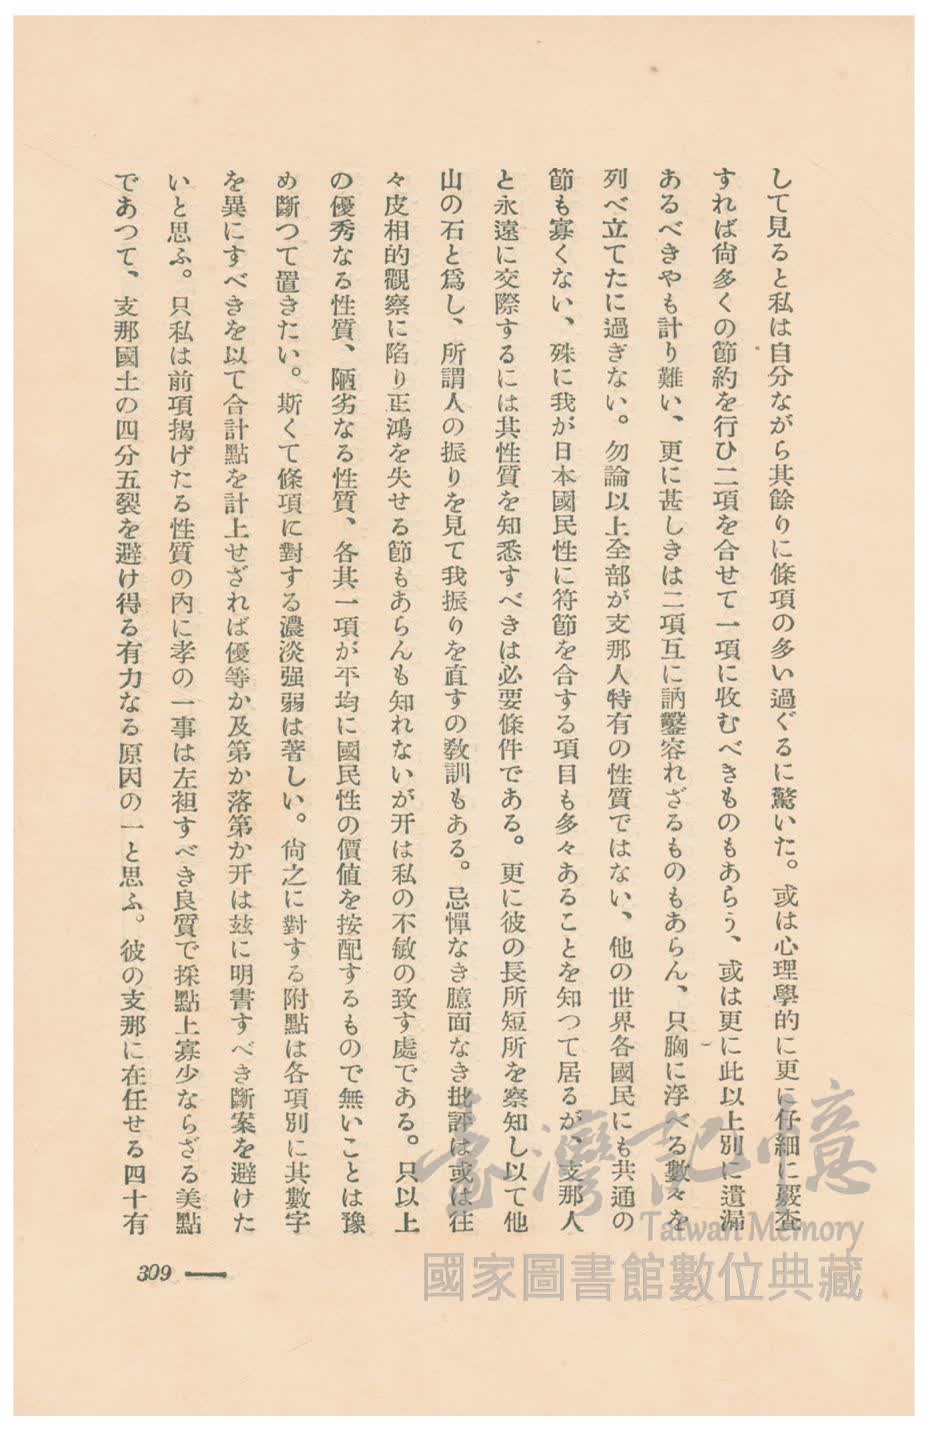 して見ると私は自分ながら其餘りに條項の多い過ぐるに驚いた。或は心理學的に更に仔細に覈査
すれば尙多くの節約を行ひ二項を合せて一項に收むべきものもあらう、或は更に此以上別に遺漏
あるべきやも計り難い、更に甚しきは二項互に訥鑿容れざるものもあらん、只胸に浮べる數々を
列べ立てたに過ぎない。勿論以上全部が支那人特有の性質ではない、他の世界各國民にも共通の
節も寡くない、殊に我が日本國民性に符節を合する項目も多々あることを知つて居るが、支那人
と永遠に交際するには其性質を知悉すべきは必要條件である。更に彼の長所短所を察知し以て他
山の石と爲し、所謂人の振りを見て我振りを直すの敎訓もある。忌憚なき臆面なき批評は或は往
々皮相的觀察に陷り正鴻を失せる節もあらんも知れないが开は私の不敏の致す處である。只以上
の優秀なる性質、陋劣なる性質、各其一項が平均に國民性の價値を按配するもので無いことは豫
め斷つて置きたい。斯くて條項に對する濃淡强弱は著しい。尙之に對する附點は各項別に其數字
を異にすべきを以て合計點を計上せざれば優等か及第か落第か开は玆に明書すべき斷案を避けた
いと思ふ。只私は前項揭げたる性質の內に孝の一事は左袒すべき良質で採點上寡少ならざる美點
であつて、支那國土の四分五裂を避け得る有力なる原因の一と思ふ。彼の支那に在任せる四十有
309
臺灣記憶
Taiwan Memory
國家圖書館數位典藏